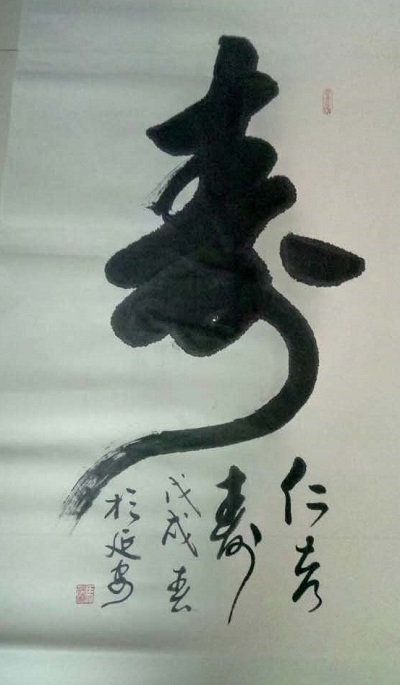 寿
仁者
寿
戊戌春
於延安